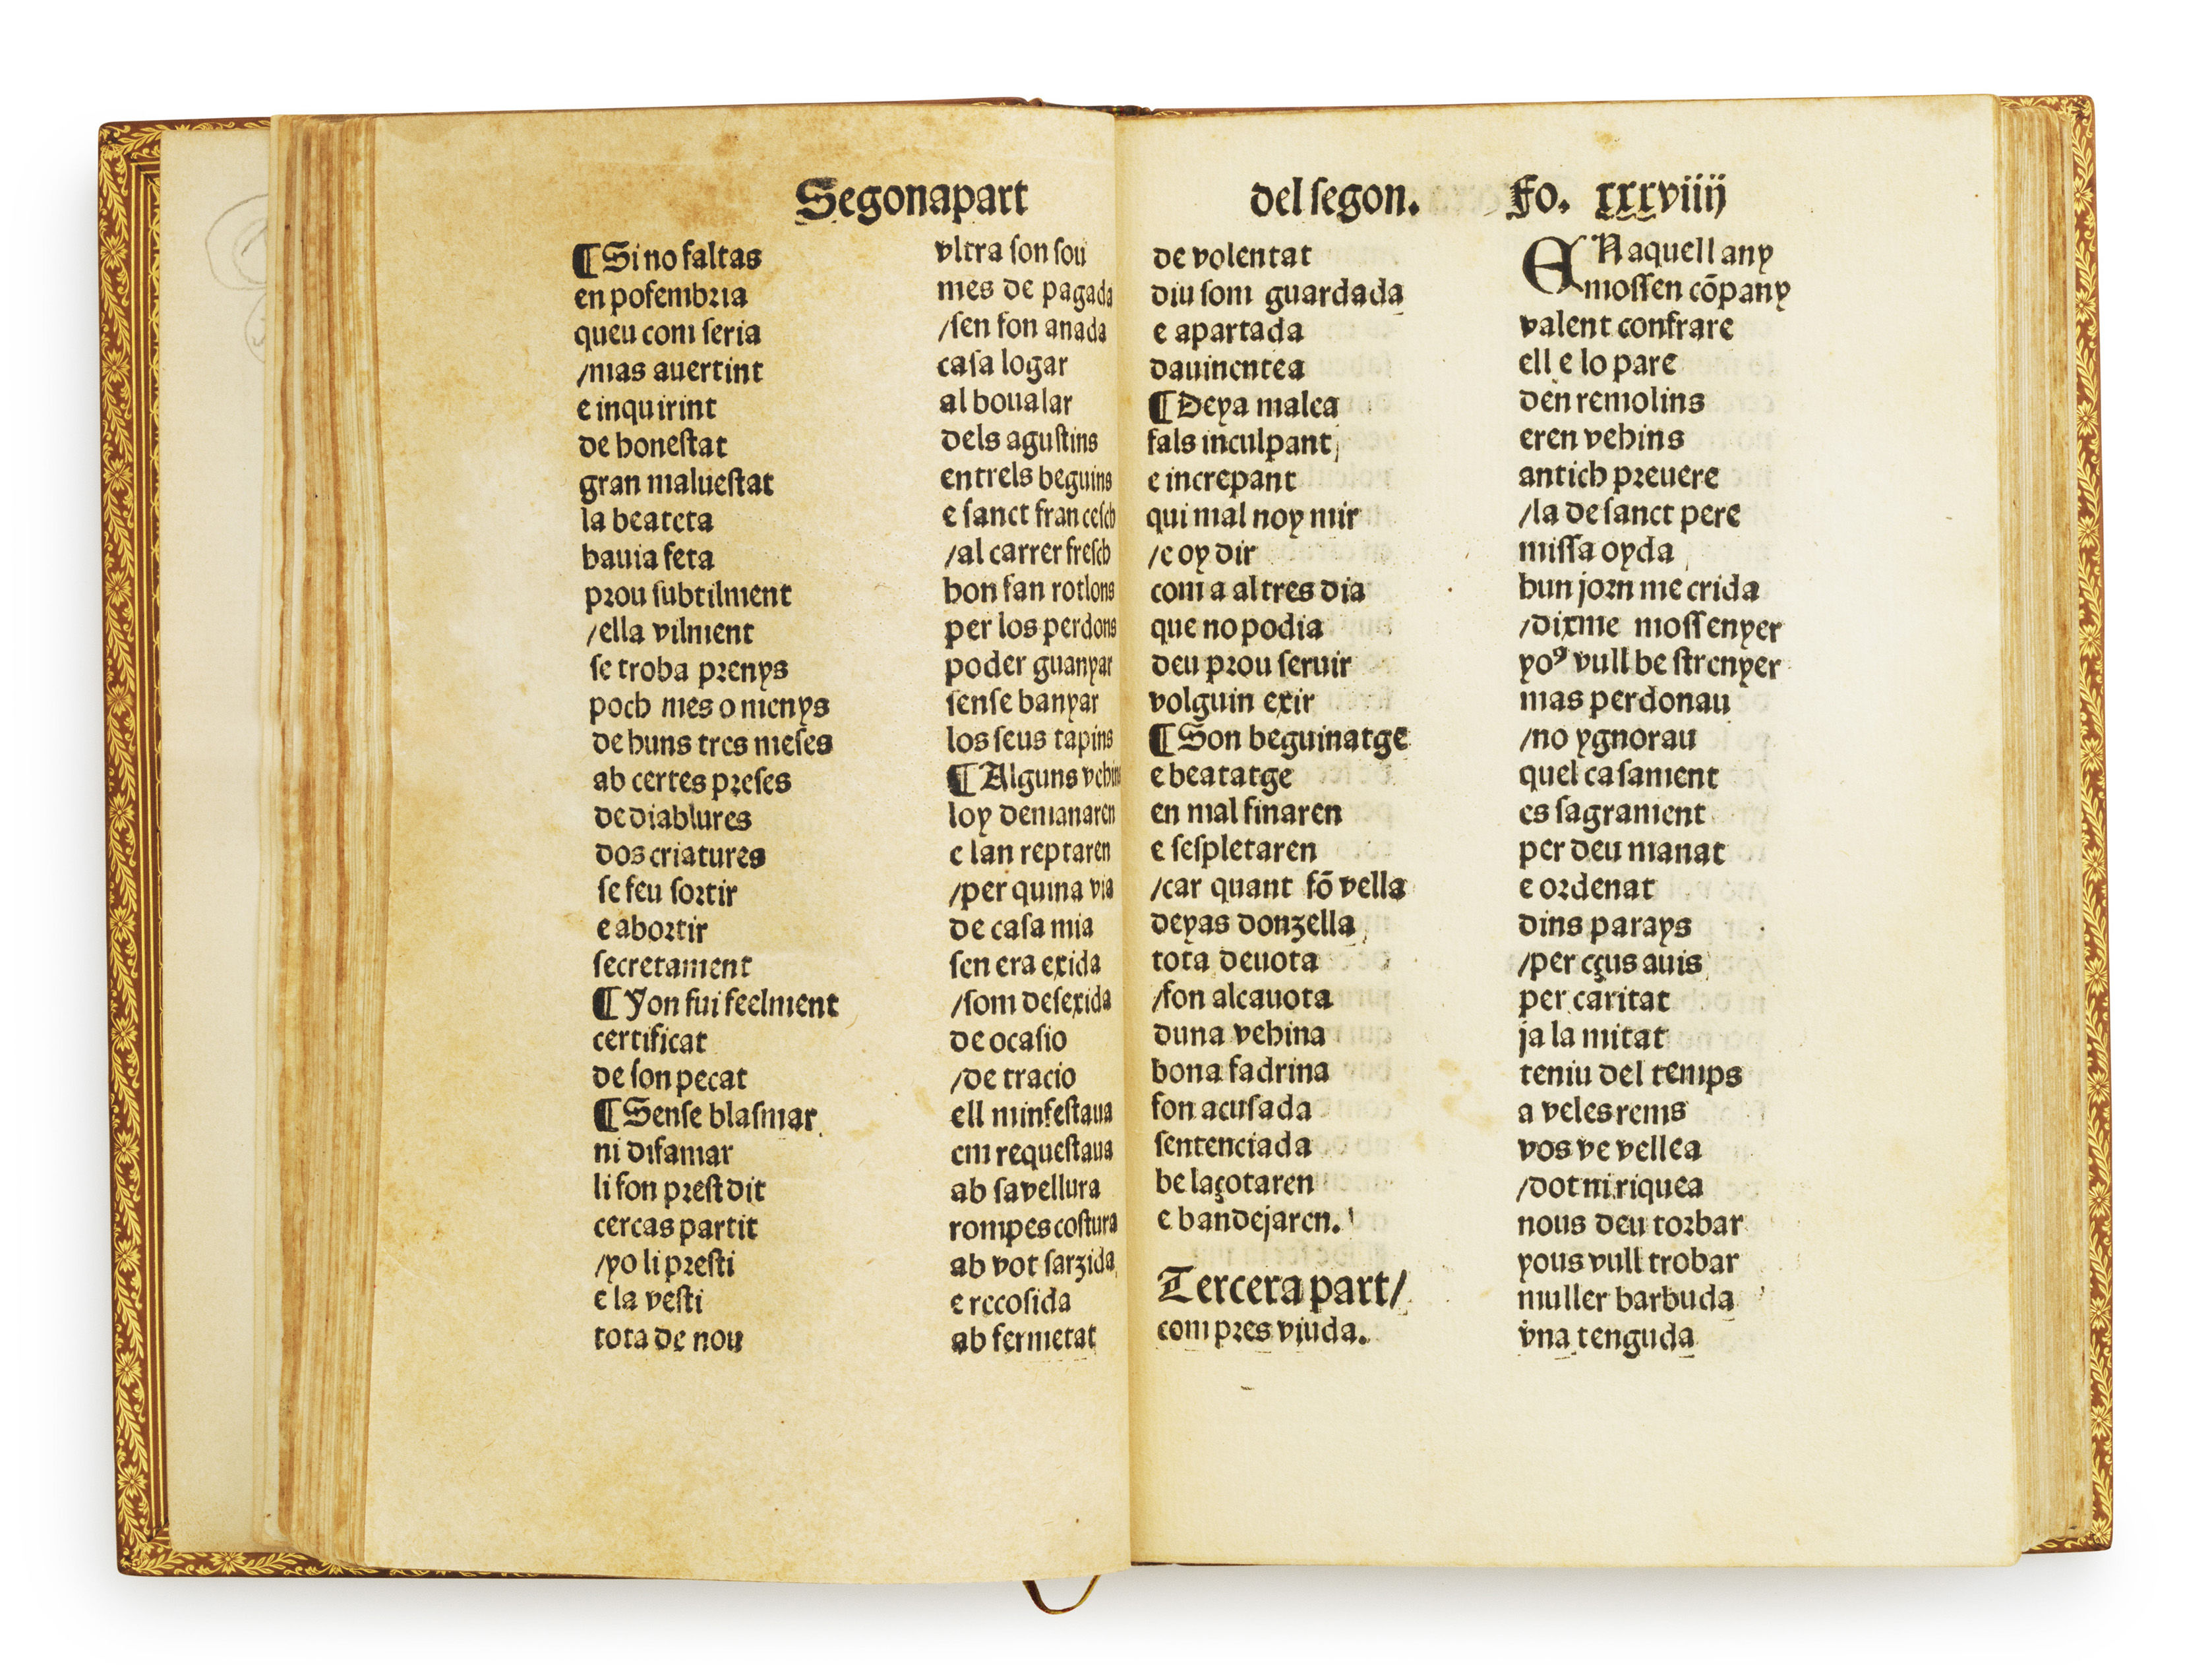 Segonapart
¶ Si no faltas
en posembria
queu com seria
/mas auertint
e inquirint
de honestat
gran maluestat
la beateta
hauia feta
prou subtilment
/ella vilment
se troba prenys
poch mes o menys
de huns tres meses
ab certes preses
de diablures
dos criatures
se feu sortir
e abortir
secretament
¶ Yon fui feelment
certificat
de son pecat
¶ Sense blasmar
ni difamar
li fon prest dit
cercas partit
/yo li presti
e la vesti
tota de nou
vltra son sou
mes de pagada
/sen fon anada
casa logar
al boualar
dels agustins
entrels beguins
e sanct francesch
/al carrer fresch
hon fan rotlons
per los perdons
poder guanyar
sense banyar
los seus tapins
¶ Alguns vehins
loy demanaren
e lan reptaren
/per quina via
de casa mia
sen era exida
/som desexida
de ocasio
/de tracio
ell minfestaua
em requestaua
ab sa vellura
rompes costura
ab vot sarzida
e recosida
ab fermetat
del segon. Fo. xxxviiij
de volentat
diu som guardada
e apartada
dauinentea
¶ Deya malea
fals inculpant
e increpant
qui mal noy mir
/e oy dir
com a altres dia
que no podia
deu prou seruir
volguin exir
¶ Son beguinatge
e beatatge
en mal finaren
e sespletaren
/car quant fõ vella
deyas donzella
tota deuota
/fon alcauota
duna vehina
bona fadrina
fon acusada
sentenciada
be laçotaren
e bandejaren.
Tercera part/
com pres viuda.
EN aquell any
mossen cõpany
valent confrare
ell e lo pare
den remolins
eren vehins
antich preuere
/la de sanct pere
missa oyda
hun jorn me crida
/dixme mossenyer
yoꝰ vull be strenyer
mas perdonau
/no ygnorau
quel casament
es sagrament
per deu manat
e ordenat
dins parays
/per çous auis
per caritat
ja la mitat
teniu del temps
a veles rems
vos ve vellea
/dot ni riquea
nous deu torbar
yous vull trobar
muller barbuda
vna tenguda